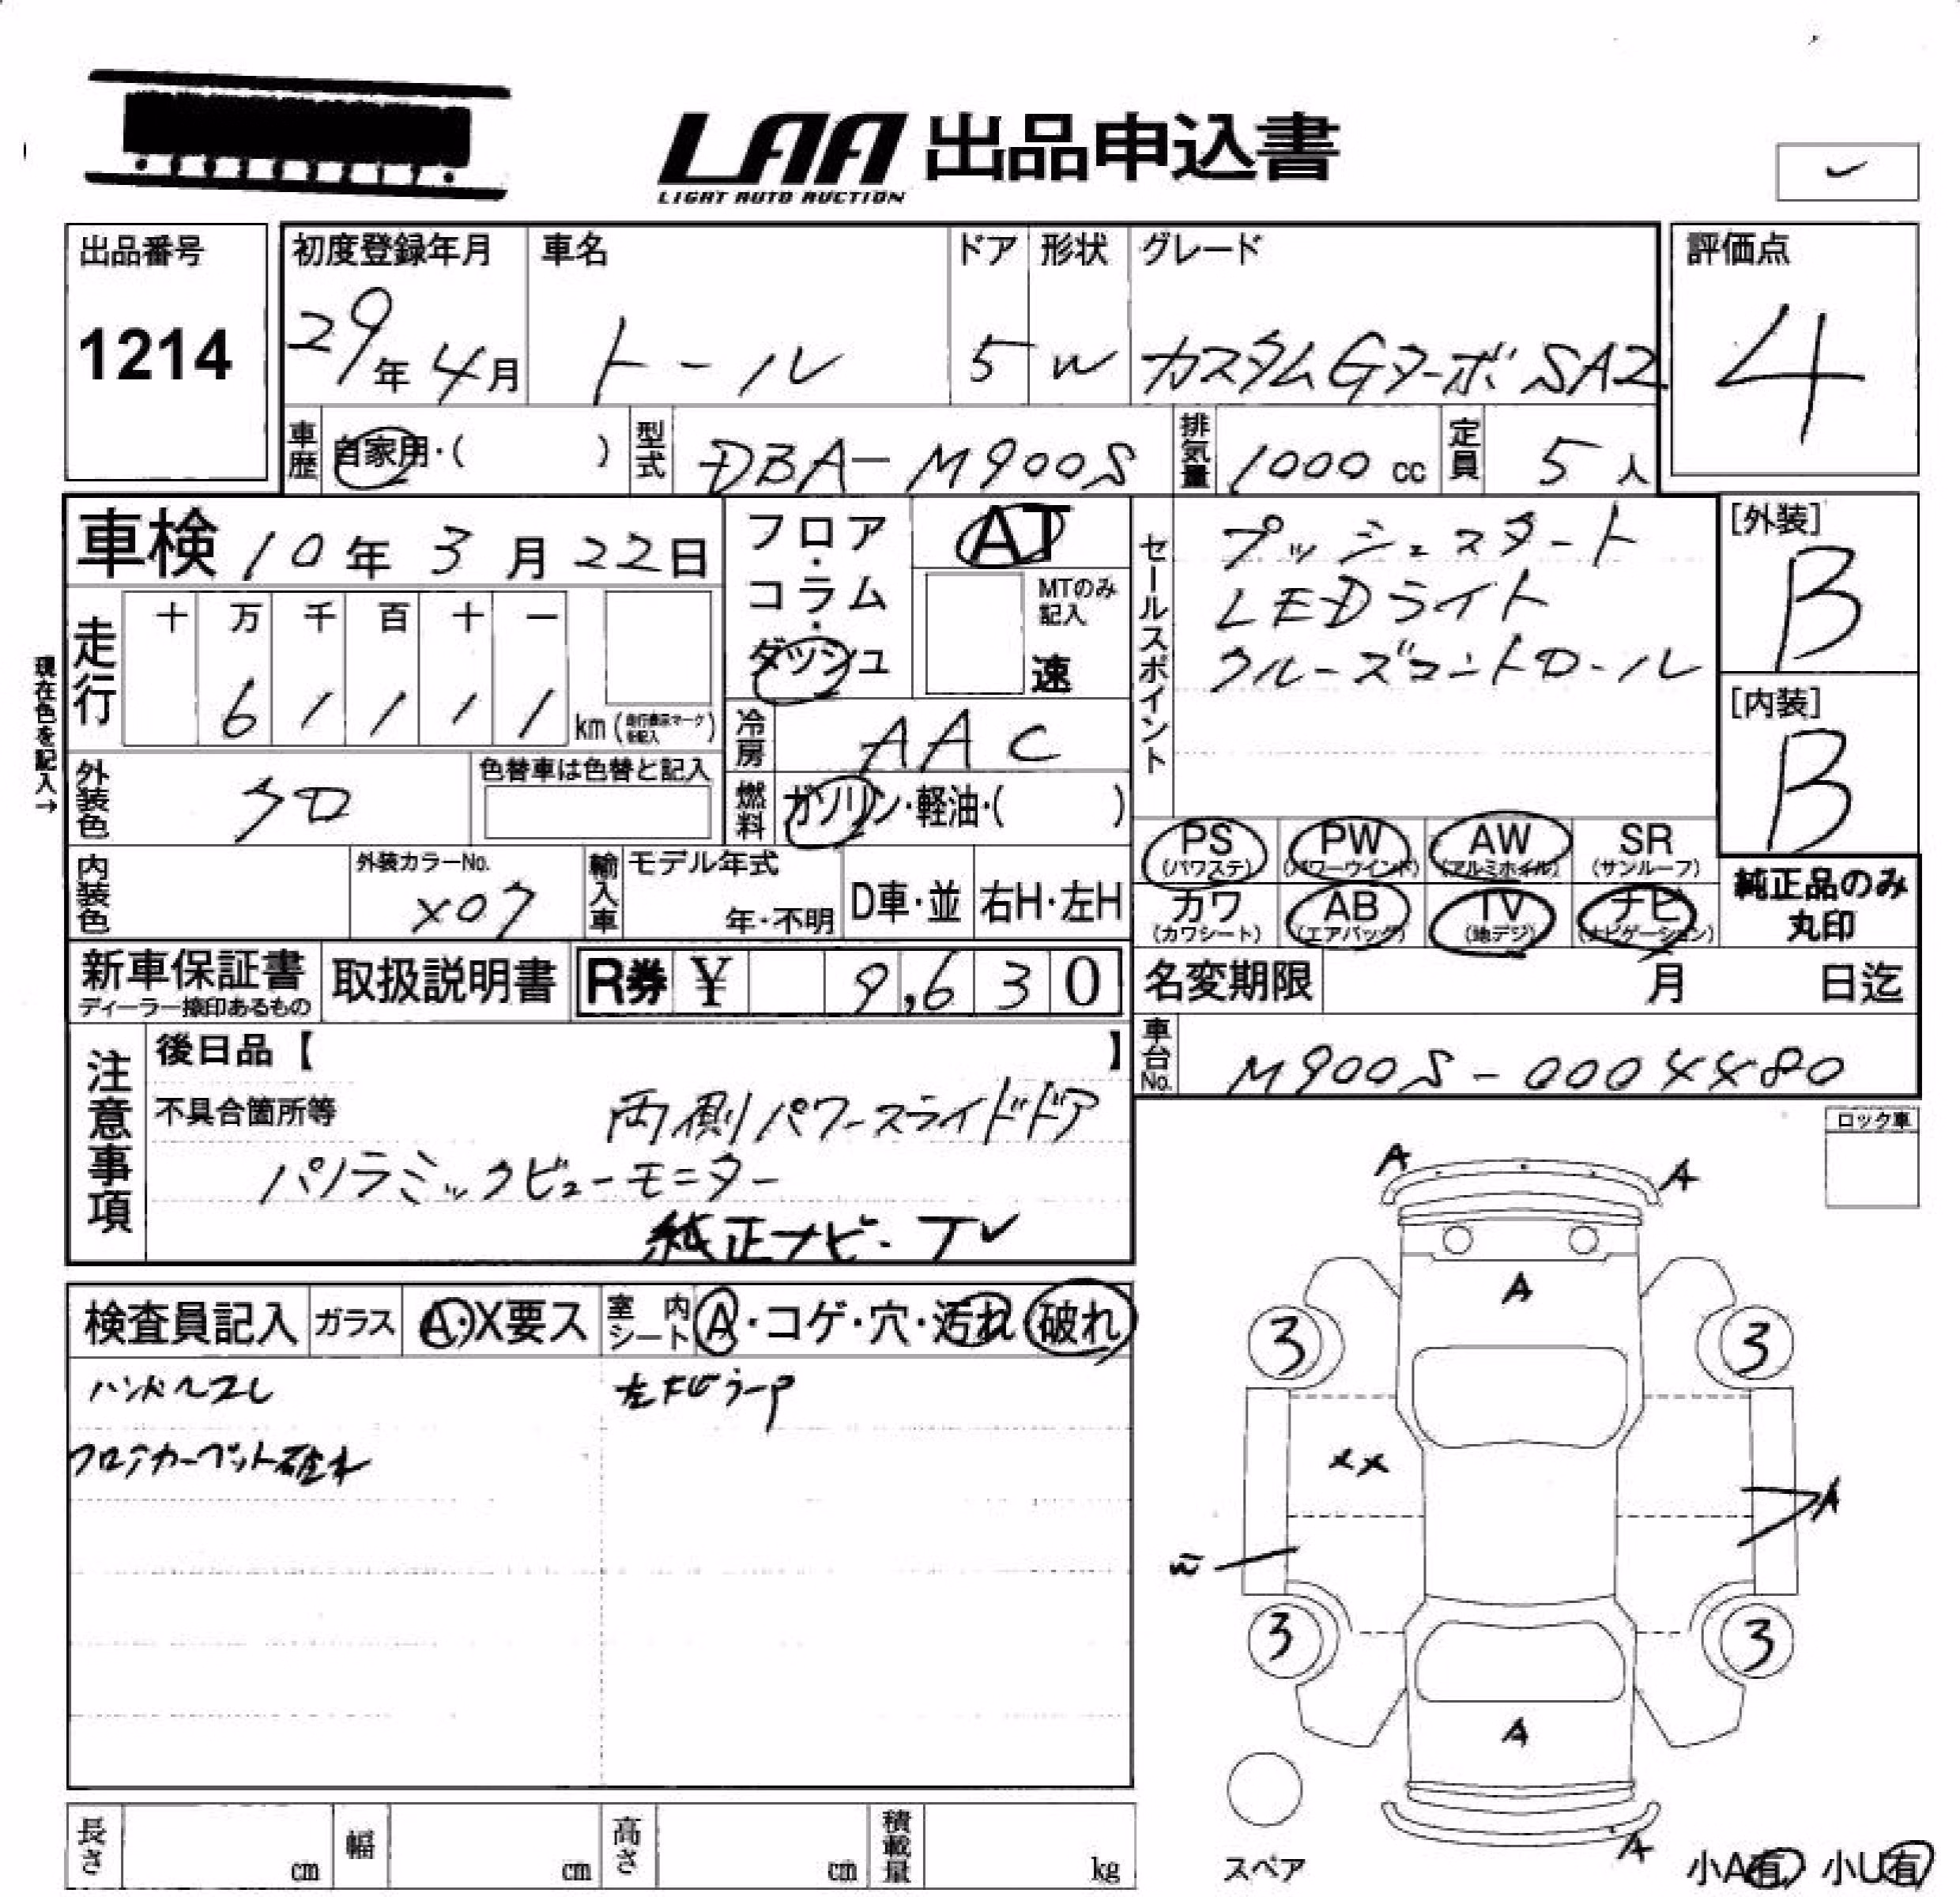 LAA 出品申込書
LIGHT AUTO AUCTION
出品番号
1214
初度登録年月
29年4月
車名
トール
ドア
5
形状
W
グレード
カスタムGターボSA2
評価点
4
車歴
自家用・( )
型式
DBA-M900S
排気量
1000 cc
定員
5人
車検 10年3月22日
フロア・コラム・ダッシュ
AT
MTのみ記入
速
セールスポイント
プッシュスタート
LEDライト
クルーズコントロール
[外装]
B
[内装]
B
現在色を記入→
走行
十 万 千 百 十 一
6 1 1 1 1 km (走行表示マークを記入)
冷房
AAC
外装色
クロ
色替車は色替と記入
燃料
ガソリン・軽油・( )
PS (パワステ)
PW (パワーウインド)
AW (アルミホイル)
SR (サンルーフ)
カワ (カワシート)
AB (エアバッグ)
TV (地デジ)
ナビ (ナビゲーション)
純正品のみ丸印
内装色
外装カラーNo.
X07
輸入車
モデル年式
年・不明
D車・並
右H・左H
新車保証書
ディーラー捺印あるもの
取扱説明書
R券 ¥ 9,630
名変期限 月 日迄
車台No.
M900S-0004480
注意事項
後日品【 】
不具合箇所等
両側パワースライドドア
パノラミックビューモニター
純正ナビ・TV
ロック車
検査員記入
ガラス
A・X要ス
室内シート
A・コゲ・穴・汚れ 破れ
ハンドルスレ
フロアカーペット破れ
A
A
A
3
3
XX
A
3
3
A
A
スペア
小A有 小U有
長さ cm
幅 cm
高さ cm
積載量 kg